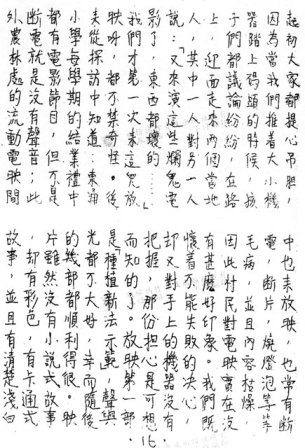 起初大家都提心吊胆，
因為當我們推着大小機
器踏上碼頭的時候，孩
子們都議論紛紛，在路
上，迎面走來兩個當地
人，其中一人對另一人
說：「又來演這些爛鬼電
影了，東西都壞的……」
我們才第一次來這兒放
映呀，都不禁奇怪。後
來從探訪中知道：東涌
小學每學期的結業禮中
都有電影節目，但不是
斷電就是沒有聲音；此
外農林處的流動電映間
中也去放映，也常有斷
電，断片，燒燈泡等等
毛病，並且內容枯燥，
因此村民對電映實在沒
有甚麽好印象。我們既
懷着不能失敗的決心，
却又對手上的機器沒有
把握，那份担心是可想
而知的了。放映第一部
是「種植新法示範」，聲與
光都不大好，幸而隨後
的幾部都順利得很。映
片雖然沒有小說式，
却有彩色，有卡通式
故事，並且有清楚淺白
16.